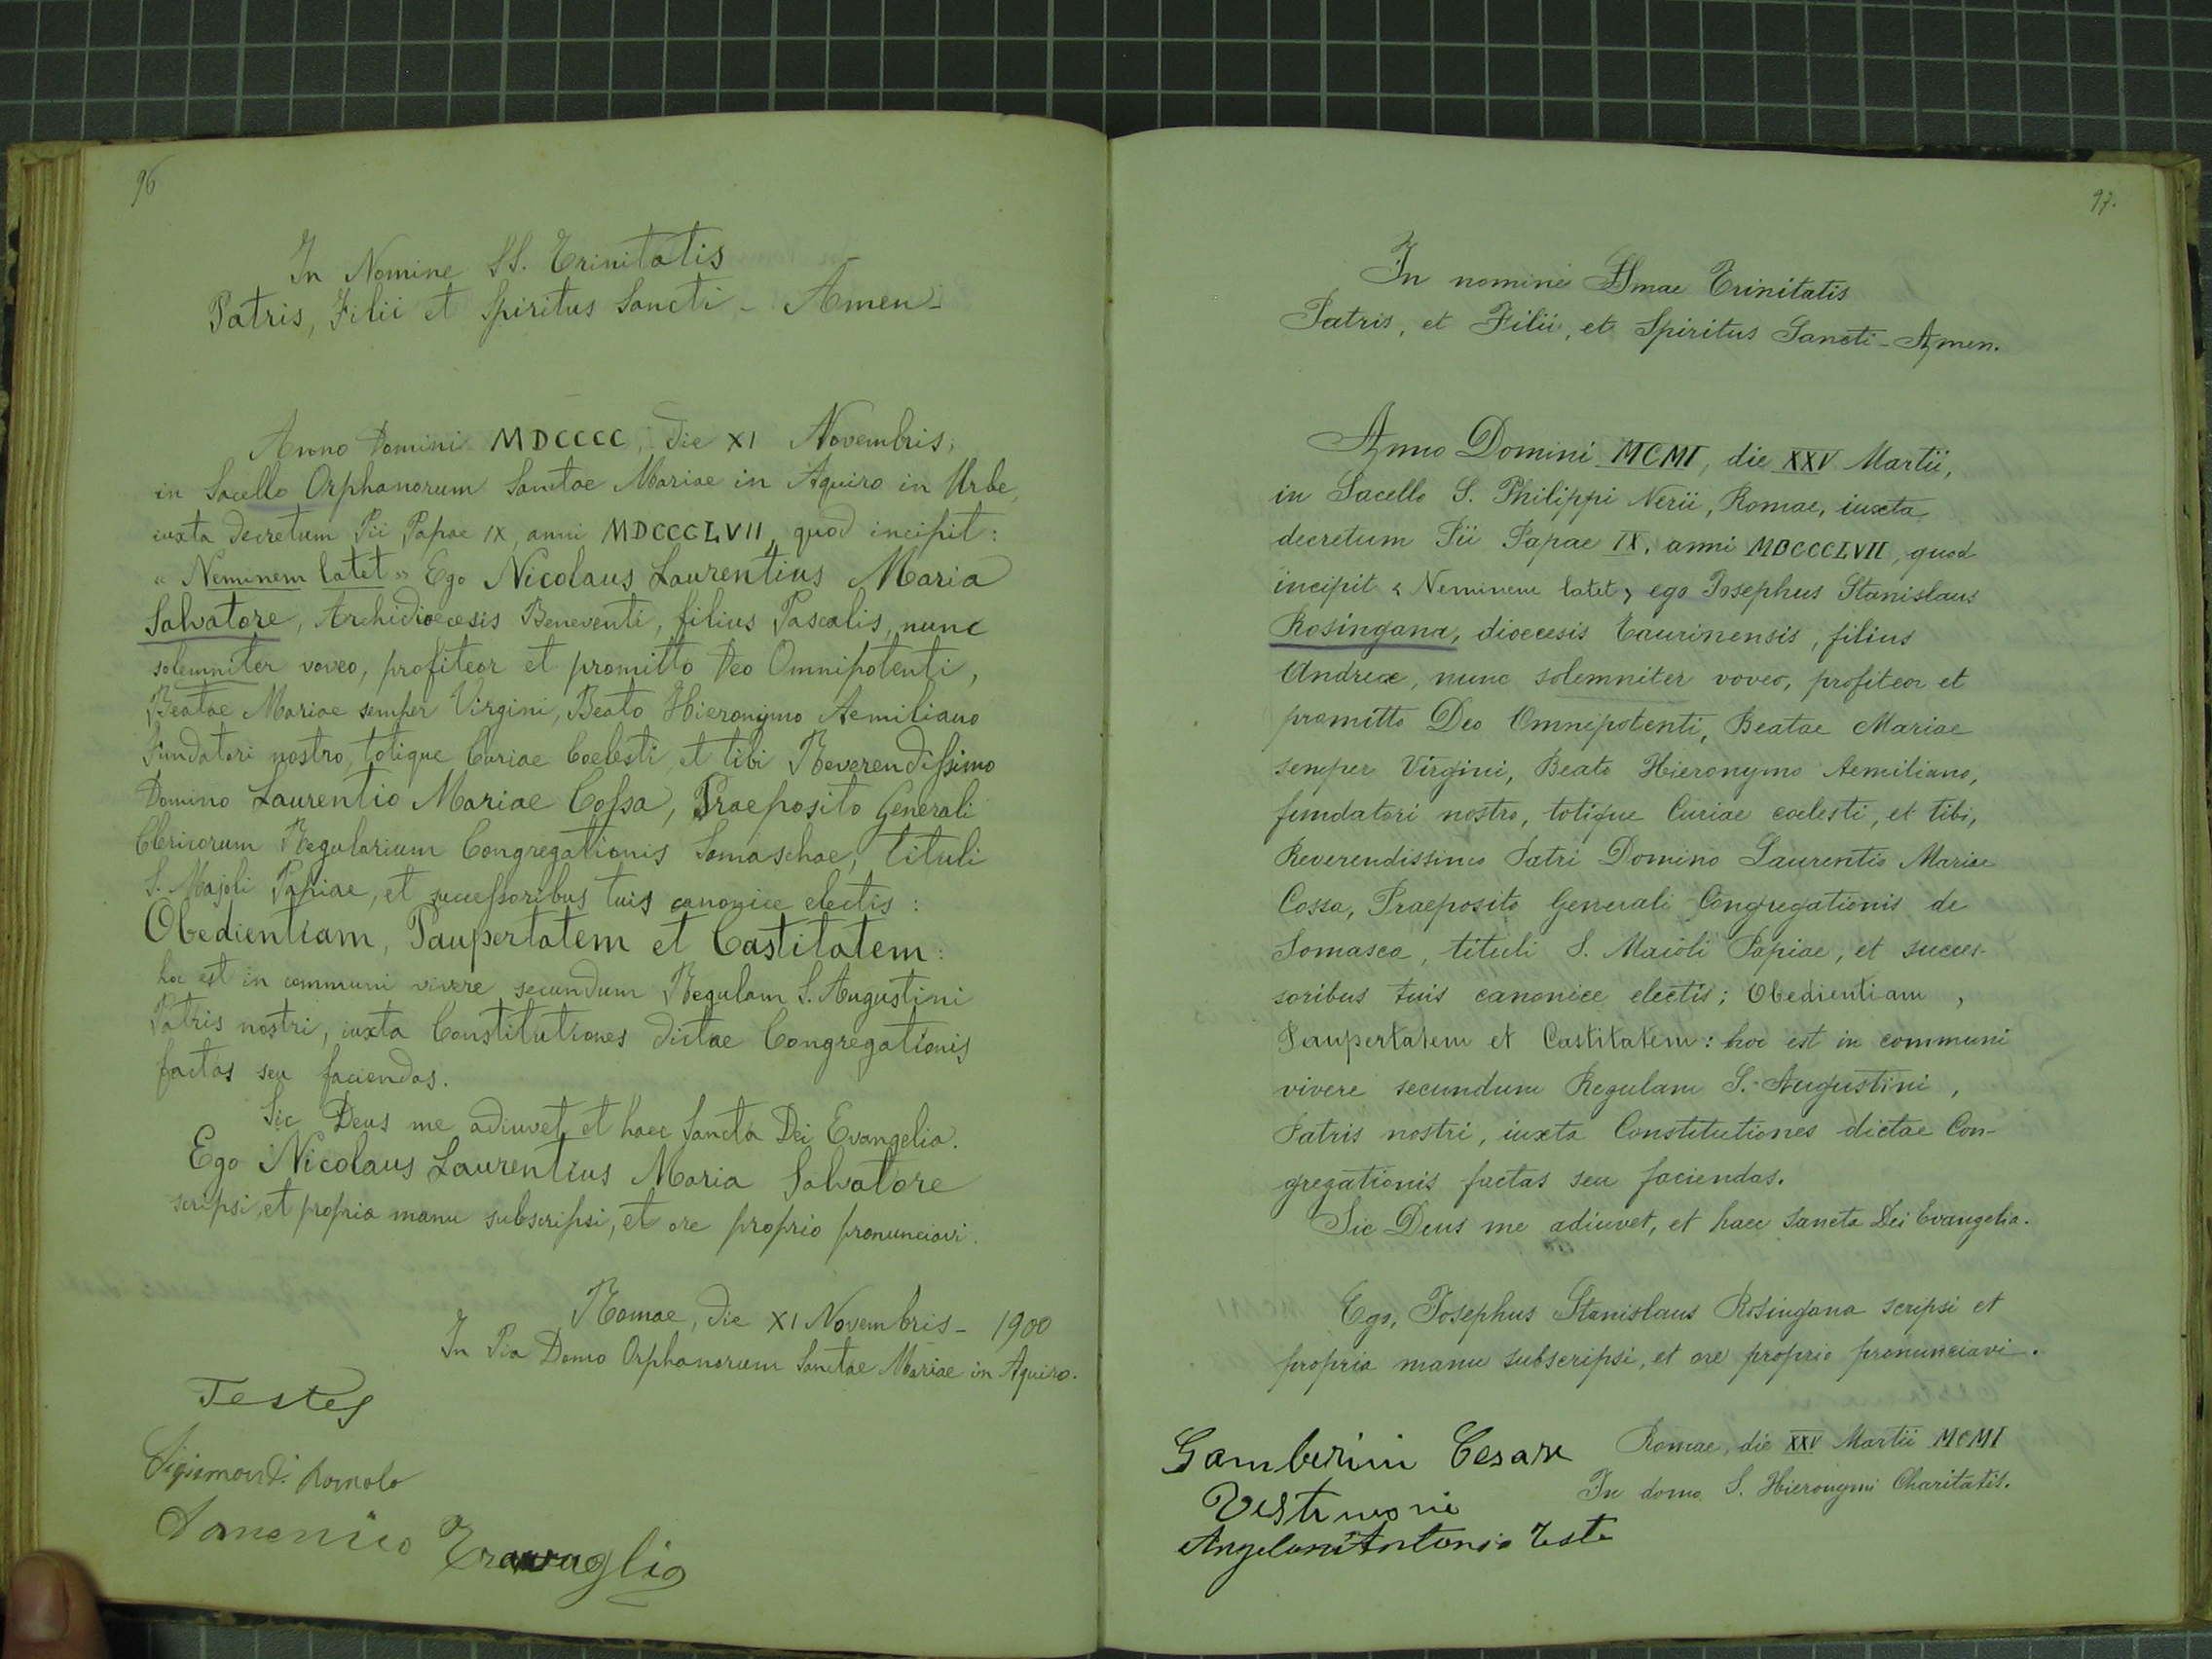 96
In Nomine SS. Trinitatis
Patris, Filii et Spiritus Sancti - Amen -
Anno Domini MDCCCC, die XI Novembris,
in Sacello Orphanorum Sanctae Mariae in Aquiro in Urbe,
iuxta decretum Pii Papae IX, anni MDCCCLVII, quod incipit:
« Neminem latet » Ego Nicolaus Laurentius Maria
Salvatore, Archidioecesis Beneventi, filius Pascalis, nunc
solemniter voveo, profiteor et promitto Deo Omnipotenti,
Beatae Mariae semper Virgini, Beato Hieronymo Aemiliano
Fundatori nostro, totique Curiae Coelesti, et tibi Reverendissimo
Domino Laurentio Mariae Cossa, Praeposito Generali
Clericorum Regularium Congregationis Somaschae, tituli
S. Majoli Papiae, et successoribus tuis canonice electis:
Obedientiam, Paupertatem et Castitatem:
hoc est in communi vivere secundum Regulam S. Augustini
Patris nostri, iuxta Constitutiones dictae Congregationis
factas seu faciendas.
Sic Deus me adiuvet et haec Sancta Dei Evangelia.
Ego Nicolaus Laurentius Maria Salvatore
scripsi, et propria manu subscripsi, et ore proprio pronunciavi.
Romae, die XI Novembris - 1900
In Pia Domo Orphanorum Sanctae Mariae in Aquiro.
Testes
Sigismondi Romolo
Domenico Travaglia
97.
In nomine SSmae Trinitatis
Patris, et Filii, et Spiritus Sancti - Amen.
Anno Domini MCMI, die XXV Martii,
in Sacello S. Philippi Nerii, Romae, iuxta
decretum Pii Papae IX, anni MDCCCLVII, quod
incipit < Neminem latet > ego Iosephus Stanislaus
Rosingana, dioecesis Taurinensis, filius
Andreæ, nunc solemniter voveo, profiteor et
promitto Deo Omnipotenti, Beatae Mariae
semper Virgini, Beato Hieronymo Aemiliano,
fundatori nostro, totique Curiae coelesti, et tibi,
Reverendissimo Patri Domino Laurentio Mariae
Cossa, Praeposito Generali Congregationis de
Somasca, tituli S. Maioli Papiae, et succes-
soribus tuis canonice electis; Obedientiam,
Paupertatem et Castitatem: hoc est in communi
vivere secundum Regulam S. Augustini,
Patris nostri, iuxta Constitutiones dictae Con-
gregationis factas seu faciendas.
Sic Deus me adiuvet, et haec Sancta Dei Evangelia.
Ego, Iosephus Stanislaus Rosingana scripsi et
propria manu subscripsi, et ore proprio pronunciavi.
Gamberini Cesare
Romae, die XXV Martii MCMI
Testimonio
In domo S. Hieronymi Charitatis.
Angeloni Antonio Teste